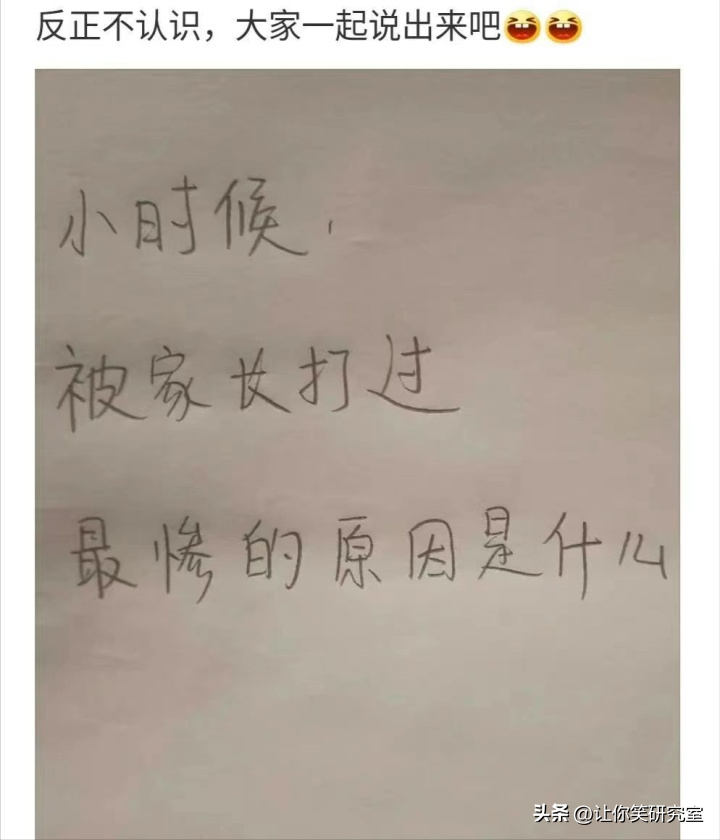 反正不认识，大家一起说出来吧😆😆
小时候，
被家长打过
最惨的原因是什么
头条 @让你笑研究室